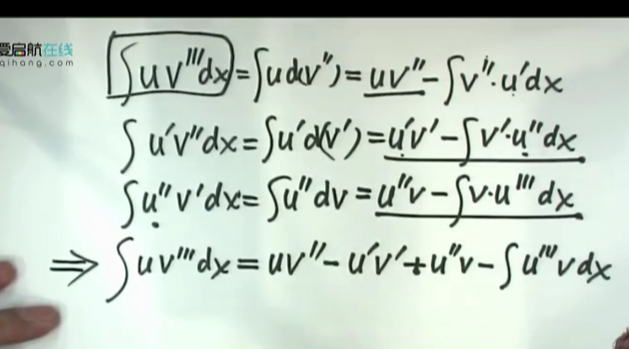 爱启航在线
qihang.com
∫uv'''dx = ∫ud(v'') = uv'' - ∫v''·u'dx
∫u'v''dx = ∫u'd(v') = u'v' - ∫v'·u''dx
∫u''v'dx = ∫u''dv = u''v - ∫v·u'''dx
⇒ ∫uv'''dx = uv'' - u'v' + u''v - ∫u'''vdx